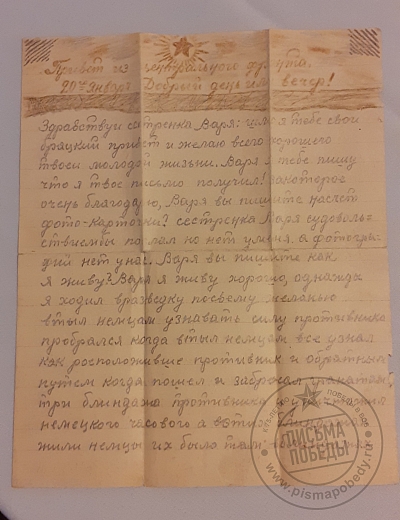 Привет из центрального фронта.
20го Января Добрый день или вечер!
Здравствуй сестренка Варя: шлю я тебе свой
брацкий привет и желаю всего хорошего
твоей молодой жизьни. Варя я тебе пишу
что я твое письмо получил! закоторое
очень благодарю, Варя вы пишите насчет
фото-карточки? сестренка Варя судоволь
ствиембы послал но нет уменя. а фотогра
фий нет унас. Варя вы пишите как
я живу? Варя я живу хорошо, однажды
я ходил вразведку посвему желанью
втыл немцам узнавать силу противника
пробрался когда втыл немцам все узнал
как росположивше противник и обратным
путем когда пошел и забросал гранатами
три блиндажа противника
немецкого часового а вэтих
жили немцы их было там
ПИСЬМА
ПОБЕДЫ
www.pismapobedy.ru